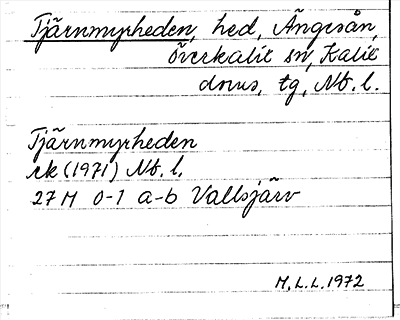 Tjärnmyrheden, hed, Ängesån,
Överkalix sn, Kalix
doms. tg, Nb. l.
Tjärnmyrheden
ek (1971) Nb. l.
27 M 0-1 a-b Vallsjärv
M.L.L. 1972